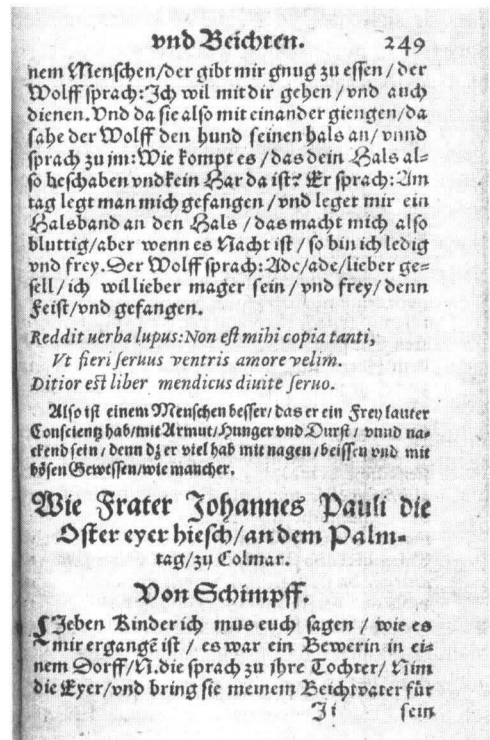 vnd Beichten. 249
nem Menschen/der gibt mir gnug zu essen / der
Wolff sprach: Ich wil mit dir gehen / vnd auch
dienen. Vnd da sie also mit einander giengen/da
sahe der Wolff den hund seinen hals an/ vnnd
sprach zu jm: Wie kompt es / das dein Hals al-
so beschaben vnd kein Har da ist? Er sprach: Am
tag legt man mich gefangen / vnd leget mir ein
Halsband an den Hals / das macht mich also
bluttig/aber wenn es Nacht ist / so bin ich ledig
vnd frey. Der Wolff sprach: Ade/ade/lieber ge-
sell / ich wil lieber mager sein / vnd frey/ denn
Feist/vnd gefangen.
Reddit verba lupus: Non est mihi copia tanti,
Vt fieri seruus ventris amore velim.
Ditior est liber mendicus diuite seruo.
Also ist einem Menschen besser/ das er ein Frey lauter
Conscientz hab/mit Armut/Hunger vnd Durst / vnnd na-
ckend sein / denn dz er viel hab mit nagen/ beissen vnd mit
bösen Gewissen/wie mancher.
Wie Frater Johannes Pauli die
Oster eyer hiesch/an dem Palm-
tag/zu Colmar.
Von Schimpff.
LJeben Kinder ich mus euch sagen / wie es
mir ergangē ist / es war ein Bewerin in ei-
nem Dorff/N. die sprach zu ihre Tochter/ Nim
die Eyer/vnd bring sie meinem Beichtvater für
Ji sein